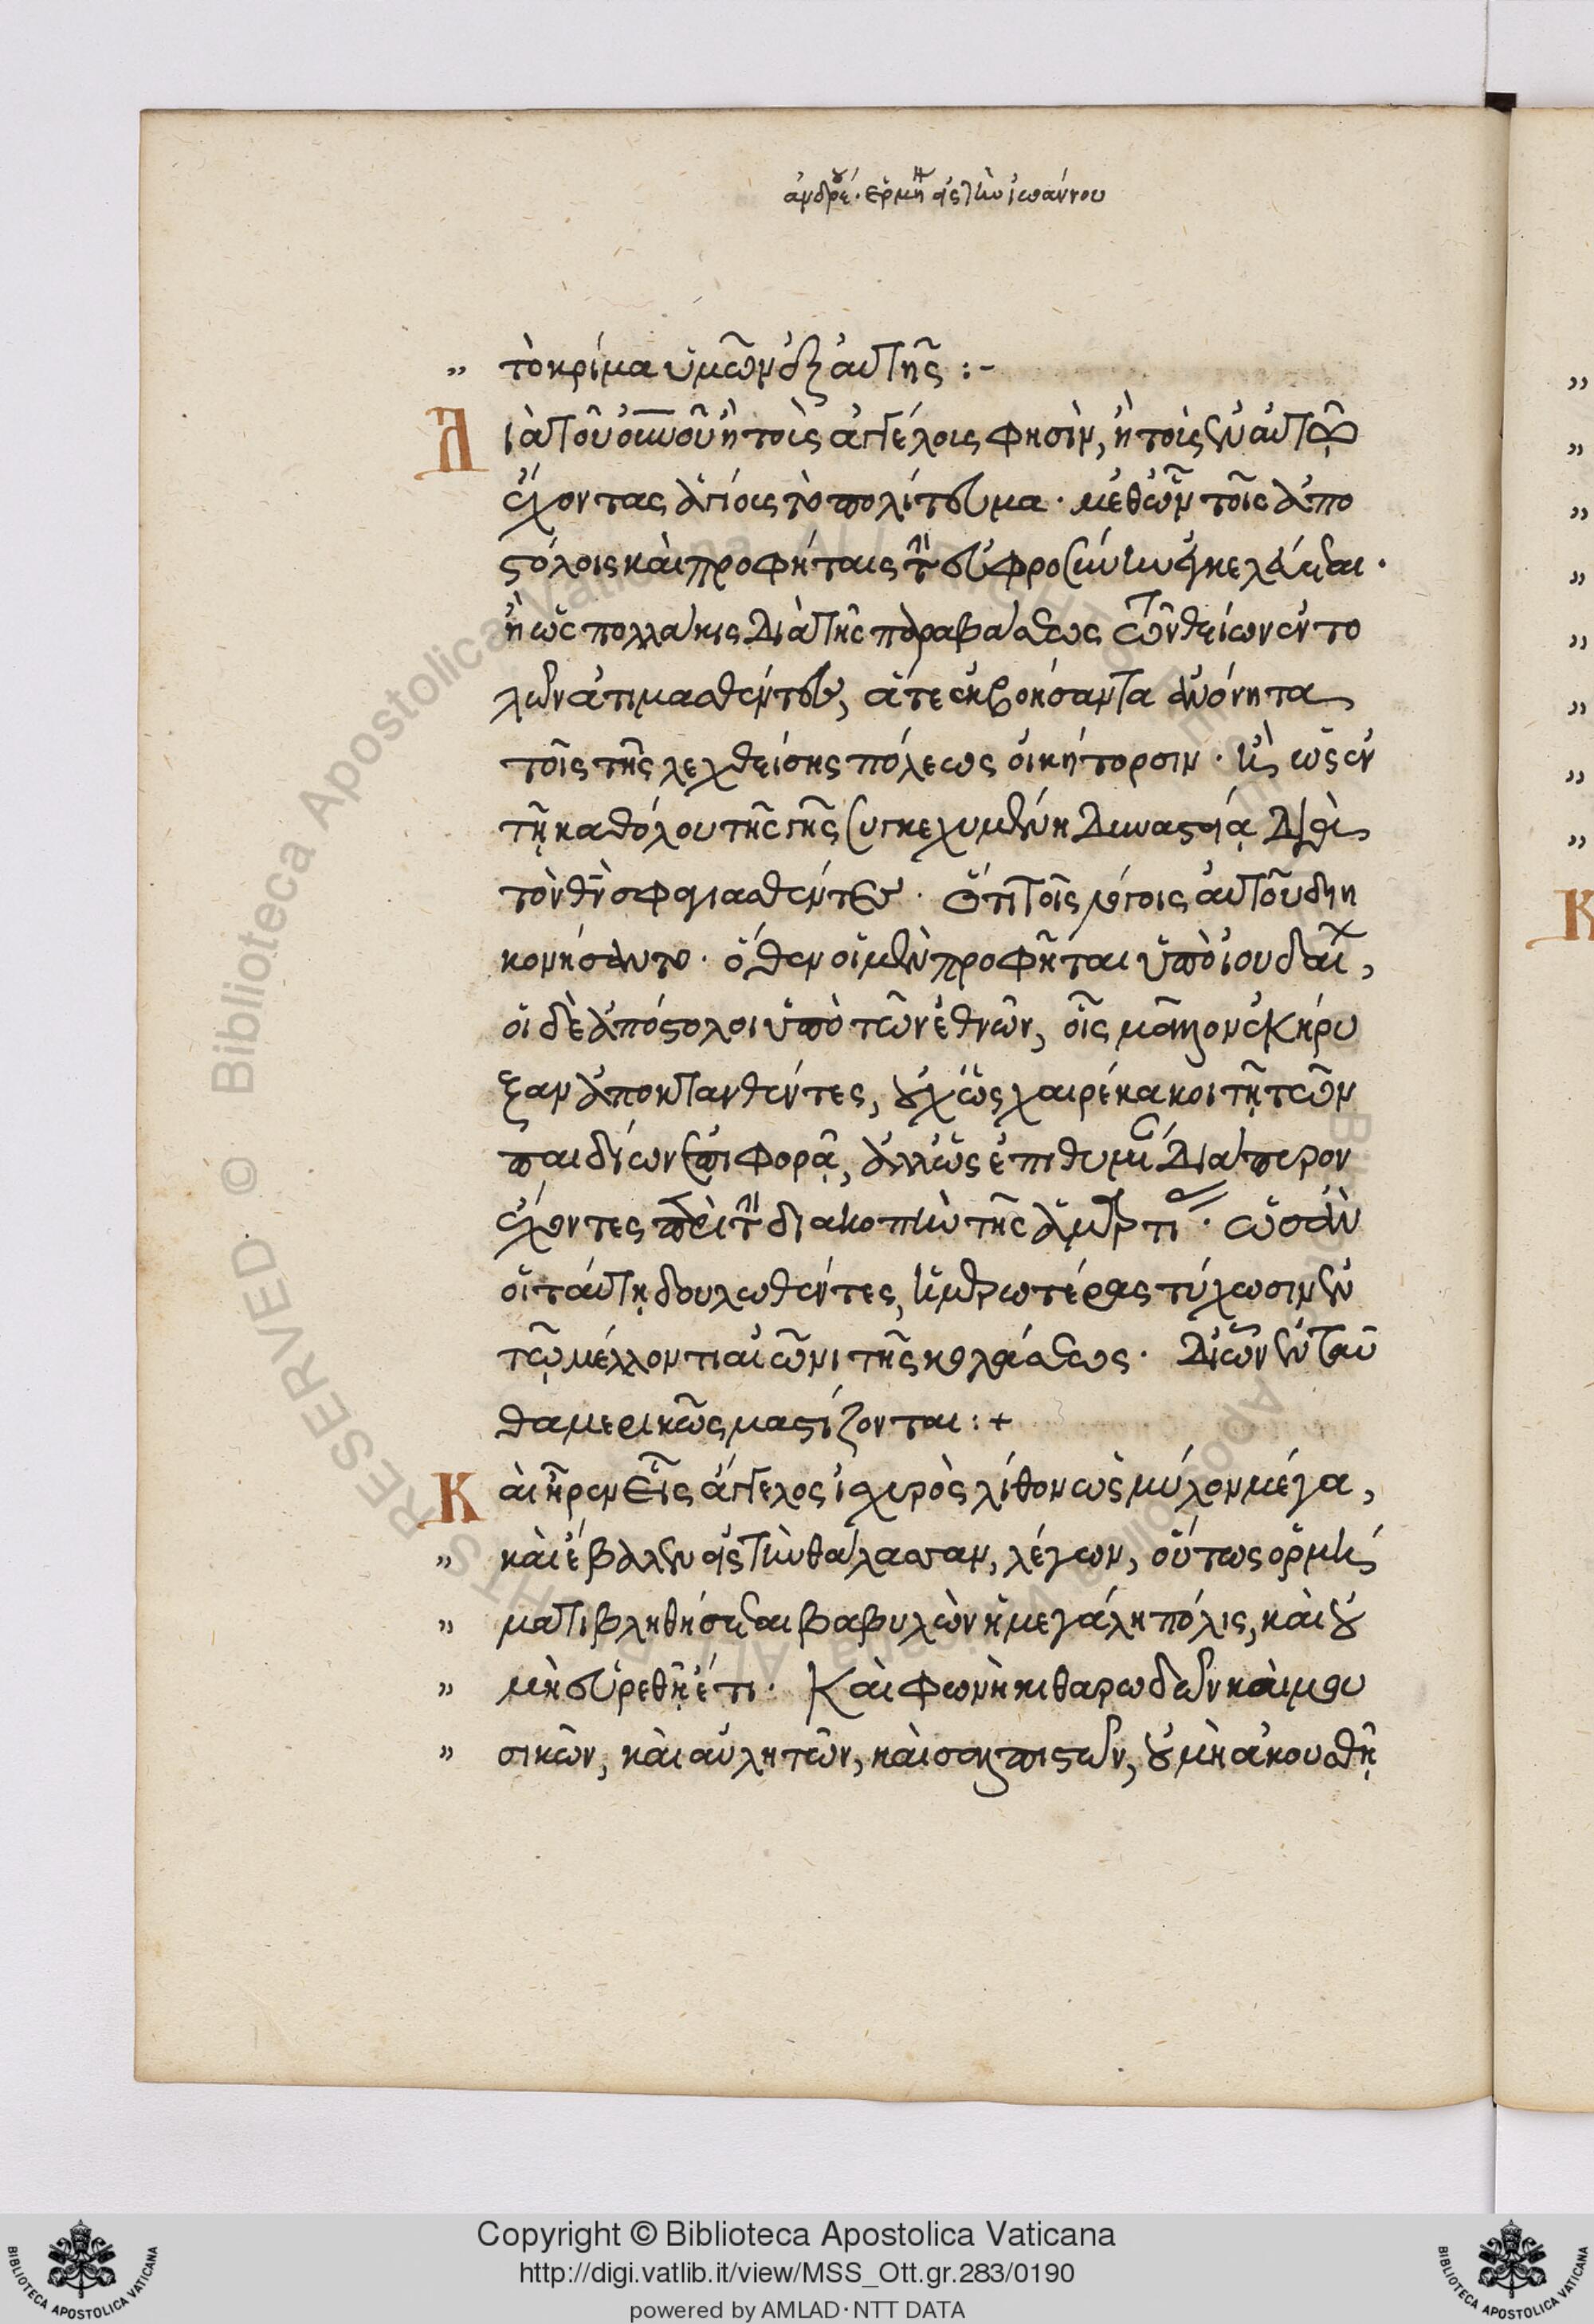 ἀνδρέου ἑρμηνεία εἰς τὴν ἰωάννου
τὸ κρίμα ὑμῶν ἐξ αὐτῆς :-
Διὰ τοῦ οὐνοῦ ἢ τοῖς ἀγγέλοις φησὶν, ἢ τοῖς ἐν αὐτῷ
ἔχοντας ἁγίοις τὸ πολίτευμα · μεθ ὧν τοῖς ἀπο
στόλοις καὶ προφήταις τὴν εὐφροσύνην ἐγκελεύεται ·
ἢ ὡς πολλάκις διὰ τῆς παραβάσεως τῶν θείων ἐντο
λῶν ἀτιμασθέντων, ἅτε ἐκβοήσαντα ἀνόνητα
τοῖς τῆς λεχθείσης πόλεως οἰκήτορσιν · ἢ ὡς ἐν
τῇ καθόλου τῆς γῆς συγκεχυμένη δυναστείᾳ διὰ
τὸν θν σφαγιασθέντες · ὅτι τοῖς λόγοις αὐτοῦ διη
κονήσαντο · ὅθεν οἱ μὲν προφῆται ὑπὸ ἰουδαίων,
οἱ δὲ ἀπόστολοι ὑπὸ τῶν ἐθνῶν, οἷς μᾶλλον ἐκήρυ
ξαν ἀποκτανθέντες, οὐχ ὡς χαιρέκακοι τῇ τῶν
παιδίων ἐπιφορᾷ, ἀλλ ὡς ἐπιθυμίαν διάπυρον
ἔχοντες περὶ τὴν διακοπὴν τῆς ἁμαρτίας · ὡσὰν
οἱ ταύτῃ δουλωθέντες, ἡμερωτέρας τύχωσιν ἐν
τῷ μέλλοντι αἰῶνι τῆς κολάσεως · δι ὧν ἐνταῦ
θα μερικῶς μαστίζονται : +
Καὶ ἦρεν εἷς ἄγγελος ἰσχυρὸς λίθον ὡς μύλον μέγα,
καὶ ἔβαλεν εἰς τὴν θάλασσαν, λέγων, οὕτως ὁρμή
ματι βληθήσεται βαβυλὼν ἡ μεγάλη πόλις, καὶ οὐ
μὴ εὑρεθῇ ἔτι · Καὶ φωνὴ κιθαρωδῶν καὶ μου
σικῶν, καὶ αὐλητῶν, καὶ σαλπιστῶν, οὐ μὴ ἀκουσθῇ
Κ
Copyright © Biblioteca Apostolica Vaticana
http://digi.vatlib.it/view/MSS_Ott.gr.283/0190
powered by AMLAD·NTT DATA
BIBLIOTECA APOSTOLICA VATICANA
BIBLIOTECA APOSTOLICA VATICANA